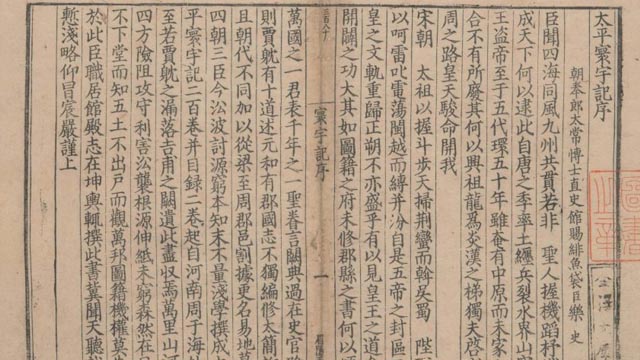 太平寰宇記序
朝奉郎太常博士直史館賜緋魚袋臣樂史
臣聞四海同風九州共貫若非 聖人握機蹈杼
成天下何以逮此自唐之季率土纏兵裂水界山
王盜帝至于五代環五十年雖奄有中原而未家
合不有所廢其何以興祖龍爲炎漢之梯獨夫啓
周之路皇天駿命開我
宋朝 太祖以握斗步天掃荊蠻而斡吳蜀 陛
以呵雷叱電蕩閩越而縛并汾自是五帝之封區
皇之文軌重歸正朔不亦盛乎有以見皇王之道
開闢之功大其如圖籍之府未修郡縣之書何以
寰宇記序
一
萬國之一君表千年之一聖眷言闕典過在史官
則賈躭有十道述元和有郡國志不獨編修太簡
且朝代不同加以從梁至周郡邑割據更名易地
四朝三臣今沿波討源窮本知末不量淺學撰成
平寰宇記二百卷并目錄二卷起自河南周于海
至若賈躭之漏落吉甫之闕遺此盡收焉萬里山河
四方險阻攻守利害沿襲根源伸紙未窮森然在
不下堂而知五土不出戶而觀萬邦圖籍機權莫
於此臣職居館殿志在坤輿輒撰此書冀聞天聽
慙淺略仰冒宸嚴謹上